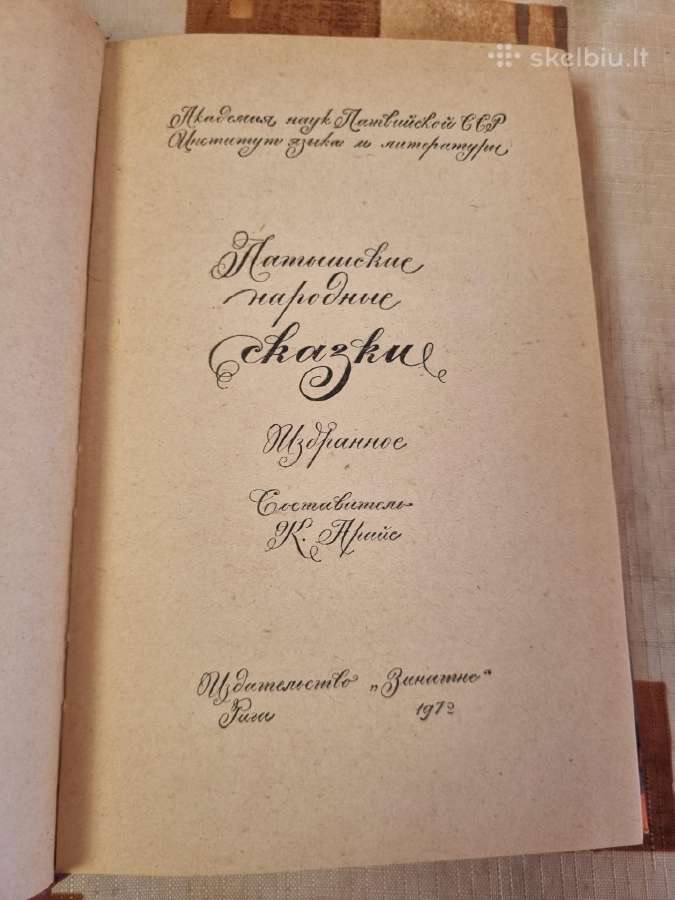 skelbiu.lt
Академия наук Латвийской ССР
Институт языка и литературы
Латышские
народные
сказки
Избранное
Составитель
К. Арайс
Издательство „Зинатне“
Рига 1972